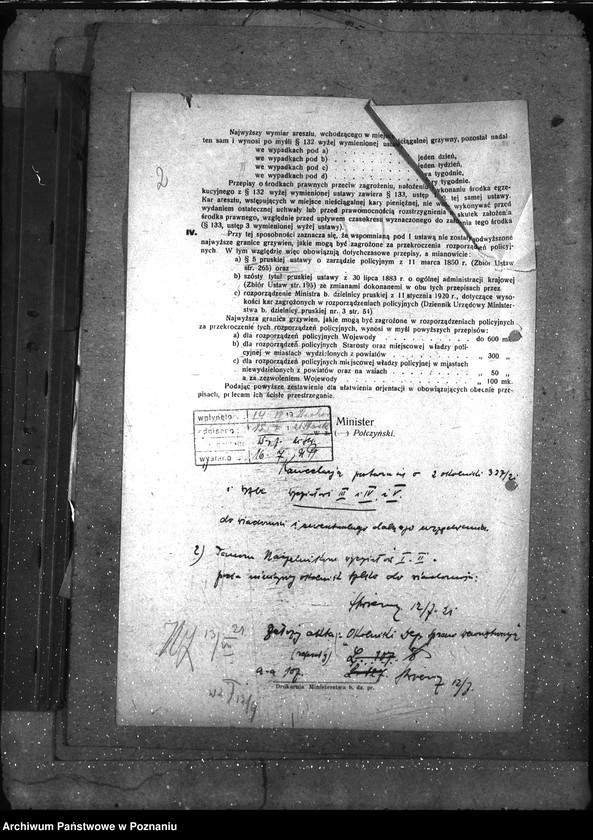 2
Najwyższy wymiar aresztu, wchodzącego w miejsce nieściągalnej grzywny, pozostał nadal
ten sam i wynosi po myśli § 132 wyżej wymienionej ustawy
we wypadkach pod a) jeden dzień,
we wypadkach pod b) jeden tydzień,
we wypadkach pod c) tygodnie,
we wypadkach pod d) tygodnie.
Przepisy o środkach prawnych przeciw zagrożeniu, nałożeniu wykonaniu środka egze-
kucyjnego z § 132 wyżej wymienionej ustawy zawiera § 133, ustęp tej samej ustawy.
Kar aresztu, wstępujących w miejsce nieściągalnej kary pieniężnej, nie wykonywać przed
wydaniem ostatecznej uchwały lub przed prawomocnością rozstrzygnienia skutek założenia
środka prawnego, względnie przed upływem czasokresu wyznaczonego do założenia tego środka
(§ 133, ustęp 3 wymienionej wyżej ustawy).
IV. Przy tej sposobności zaznacza się, że wspomnianą pod I ustawą nie zostały podwyższone
najwyższe granice grzywien, jakie mogą być zagrożone za przekroczenia rozporządzeń policyj-
nych. W tym względzie więc obowiązują dotychczasowe przepisy, a mianowicie:
a) § 5 pruskiej ustawy o zarządzie policyjnym z 11 marca 1850 r. (Zbiór Ustaw
str. 265) oraz
b) szósty tytuł pruskiej ustawy z 30 lipca 1883 r. o ogólnej administracji krajowej
(Zbiór Ustaw str. 195) ze zmianami dokonanemi w obu tych przepisach przez
c) rozporządzenie Ministra b. dzielnicy pruskiej z 11 stycznia 1920 r., dotyczące wyso-
kości kar zagrożonych w rozporządzeniach policyjnych (Dziennik Urzędowy Minister-
stwa b. dzielnicy pruskiej nr. 3 str. 51)
Najwyższa granica grzywien, jakie mogą być zagrożone w rozporządzeniach policyjnych
za przekroczenie tych rozporządzeń policyjnych, wynosi w myśl powyższych przepisów:
a) dla rozporządzeń policyjnych Wojewody do 600 mk.
b) dla rozporządzeń policyjnych Starosty oraz miejscowej władzy poli-
cyjnej w miastach wydzielonych z powiatów „ 300 „
c) dla rozporządzeń policyjnych miejscowej władzy policyjnej w miastach
niewydzielonych z powiatów oraz na wsiach „ 50 „
a za zezwoleniem Wojewody „ 100 mk.
Podając powyższe zestawienie dla ułatwienia orjentacji w obowiązujących obecnie prze-
pisach, polecam ich ściśle przestrzeganie.
Minister
(—) Połczyński.
wpłynęło 14
15
wysłano 16
Kancelarja 2 okólniki 327/21
i wydziałowi III i IV i V.
do wiadomości i ewentualnego dalszego
2) Panom Naczelnikom wydziałów I. II.
niniejszy okólnik tylko do wiadomości:
12/7. 21
13/VII 21
Założyć akta: Okólniki Dep. spraw wewnętrznych
a-a
12/7.
Drukarnia Ministerstwa b. dz. pr.
Archiwum Państwowe w Poznaniu